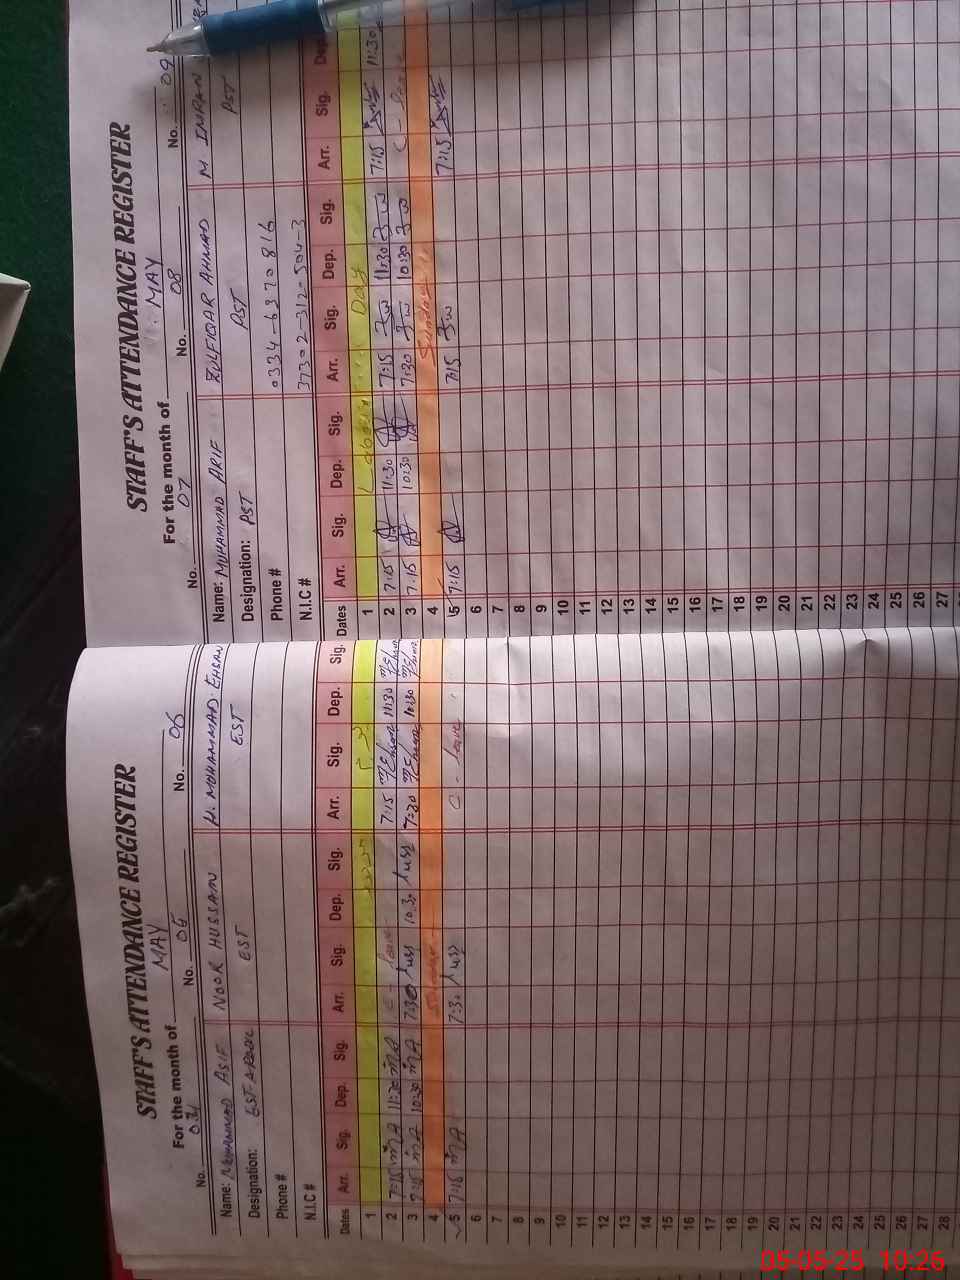 STAFF'S ATTENDANCE REGISTER
For the month of MAY
No. 04 No. 05 No. 06
Name: MUHAMMAD ASIF NOOR HUSSAN M. MOHAMMAD EHSAN
Designation: EST ARABIC EST EST
Phone #
N.I.C #
Dates Arr. Sig. Dep. Sig. Arr. Sig. Dep. Sig. Arr. Sig. Dep. Sig.
1
2 7:15 MA 11:30 MA C - leave 7:15 M.Ehsan 11:30 M.Ehsan
3 7:15 MA 10:30 MA 7:30 10:30 7:30 M.Ehsan 10:30 M.Ehsan
4 Sunday
5 7:15 MA 7:30 C - leave
6
7
8
9
10
11
12
13
14
15
16
17
18
19
20
21
22
23
24
25
26
27
28
STAFF'S ATTENDANCE REGISTER
For the month of MAY
No. 07 No. 08 No. 09
Name: MUHAMMAD ARIF ZULFIQAR AHMAD M IMRAN
Designation: PST PST PST
Phone # 0334-6370816
N.I.C #
Dates Arr. Sig. Dep. Sig. Arr. Sig. Dep. Sig. Arr. Sig. Dep.
1 Labour Day
2 7:15 11:30 7:15 11:30 7:15 11:30
3 7:15 10:30 7:30 10:30 C - leave
4 Sunday
5 7:15 7:15 7:15
6
7
8
9
10
11
12
13
14
15
16
17
18
19
20
21
22
23
24
25
26
27
05-05-25 10:26